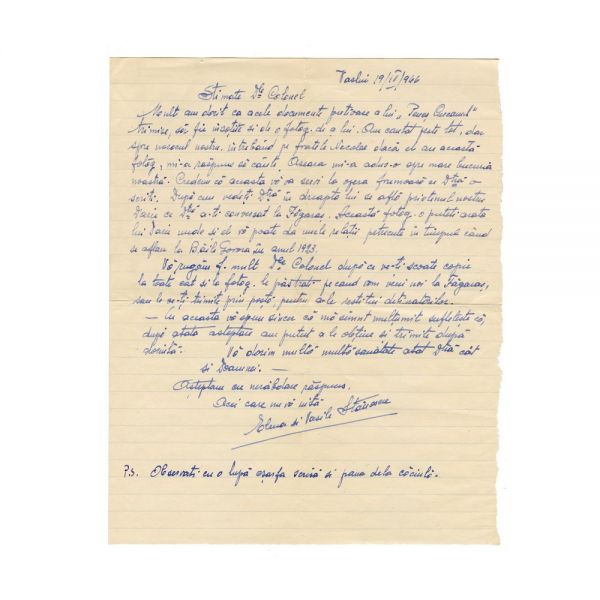 Vaslui 19/IV/966
Stimate Dle Colonel
Mult am dorit ca acele documente privitoare a lui "Peneș Curcanul"
trimise, să fie însoțite și de o fotog. de a lui. Am cautat peste tot, dar
spre norocul nostru, întrebând pe fratele Neculae dacă el are această
fotog, mi-a răspuns să caute. Aseara mi-a adus-o spre marea bucurie
noastră. Credem că aceasta vă va servi la opera frumoasă ce Dtră o
scriți. După cum vedeți Dtră în dreapta lui se află prietenul nostru
Darie cu Dtră a-ți conversat la Făgăraș. Această fotog. o puteți arata
lui Darie unde și el vă poate da unele relații petrecute în timpul când
se aflau la Băile Govora în anul 1943.
Vă rugăm f. mult Dle Colonel după ce ve-ți scoate copii
la toate cat și la fotog. le păstrați pe cand vom veni noi la Făgăraș,
sau le ve-ți trimite prin poștă, pentru a-le restitui deținătorilor.
— Cu aceasta vă spun sincer că mă simt mulțumit sufletește că,
după atata așteptare am putut a le obține și trimite după
dorință.
Vă dorim multă multă sanatate atat Dtră cât
și Doamnei. —
Așteptam cu nerăbdare răspuns.
Acei care nu vă uită
Elena și Vasile Stănescu
P.S. Observați cu o lupă eșarfa scrisă și pana dela căciulă.